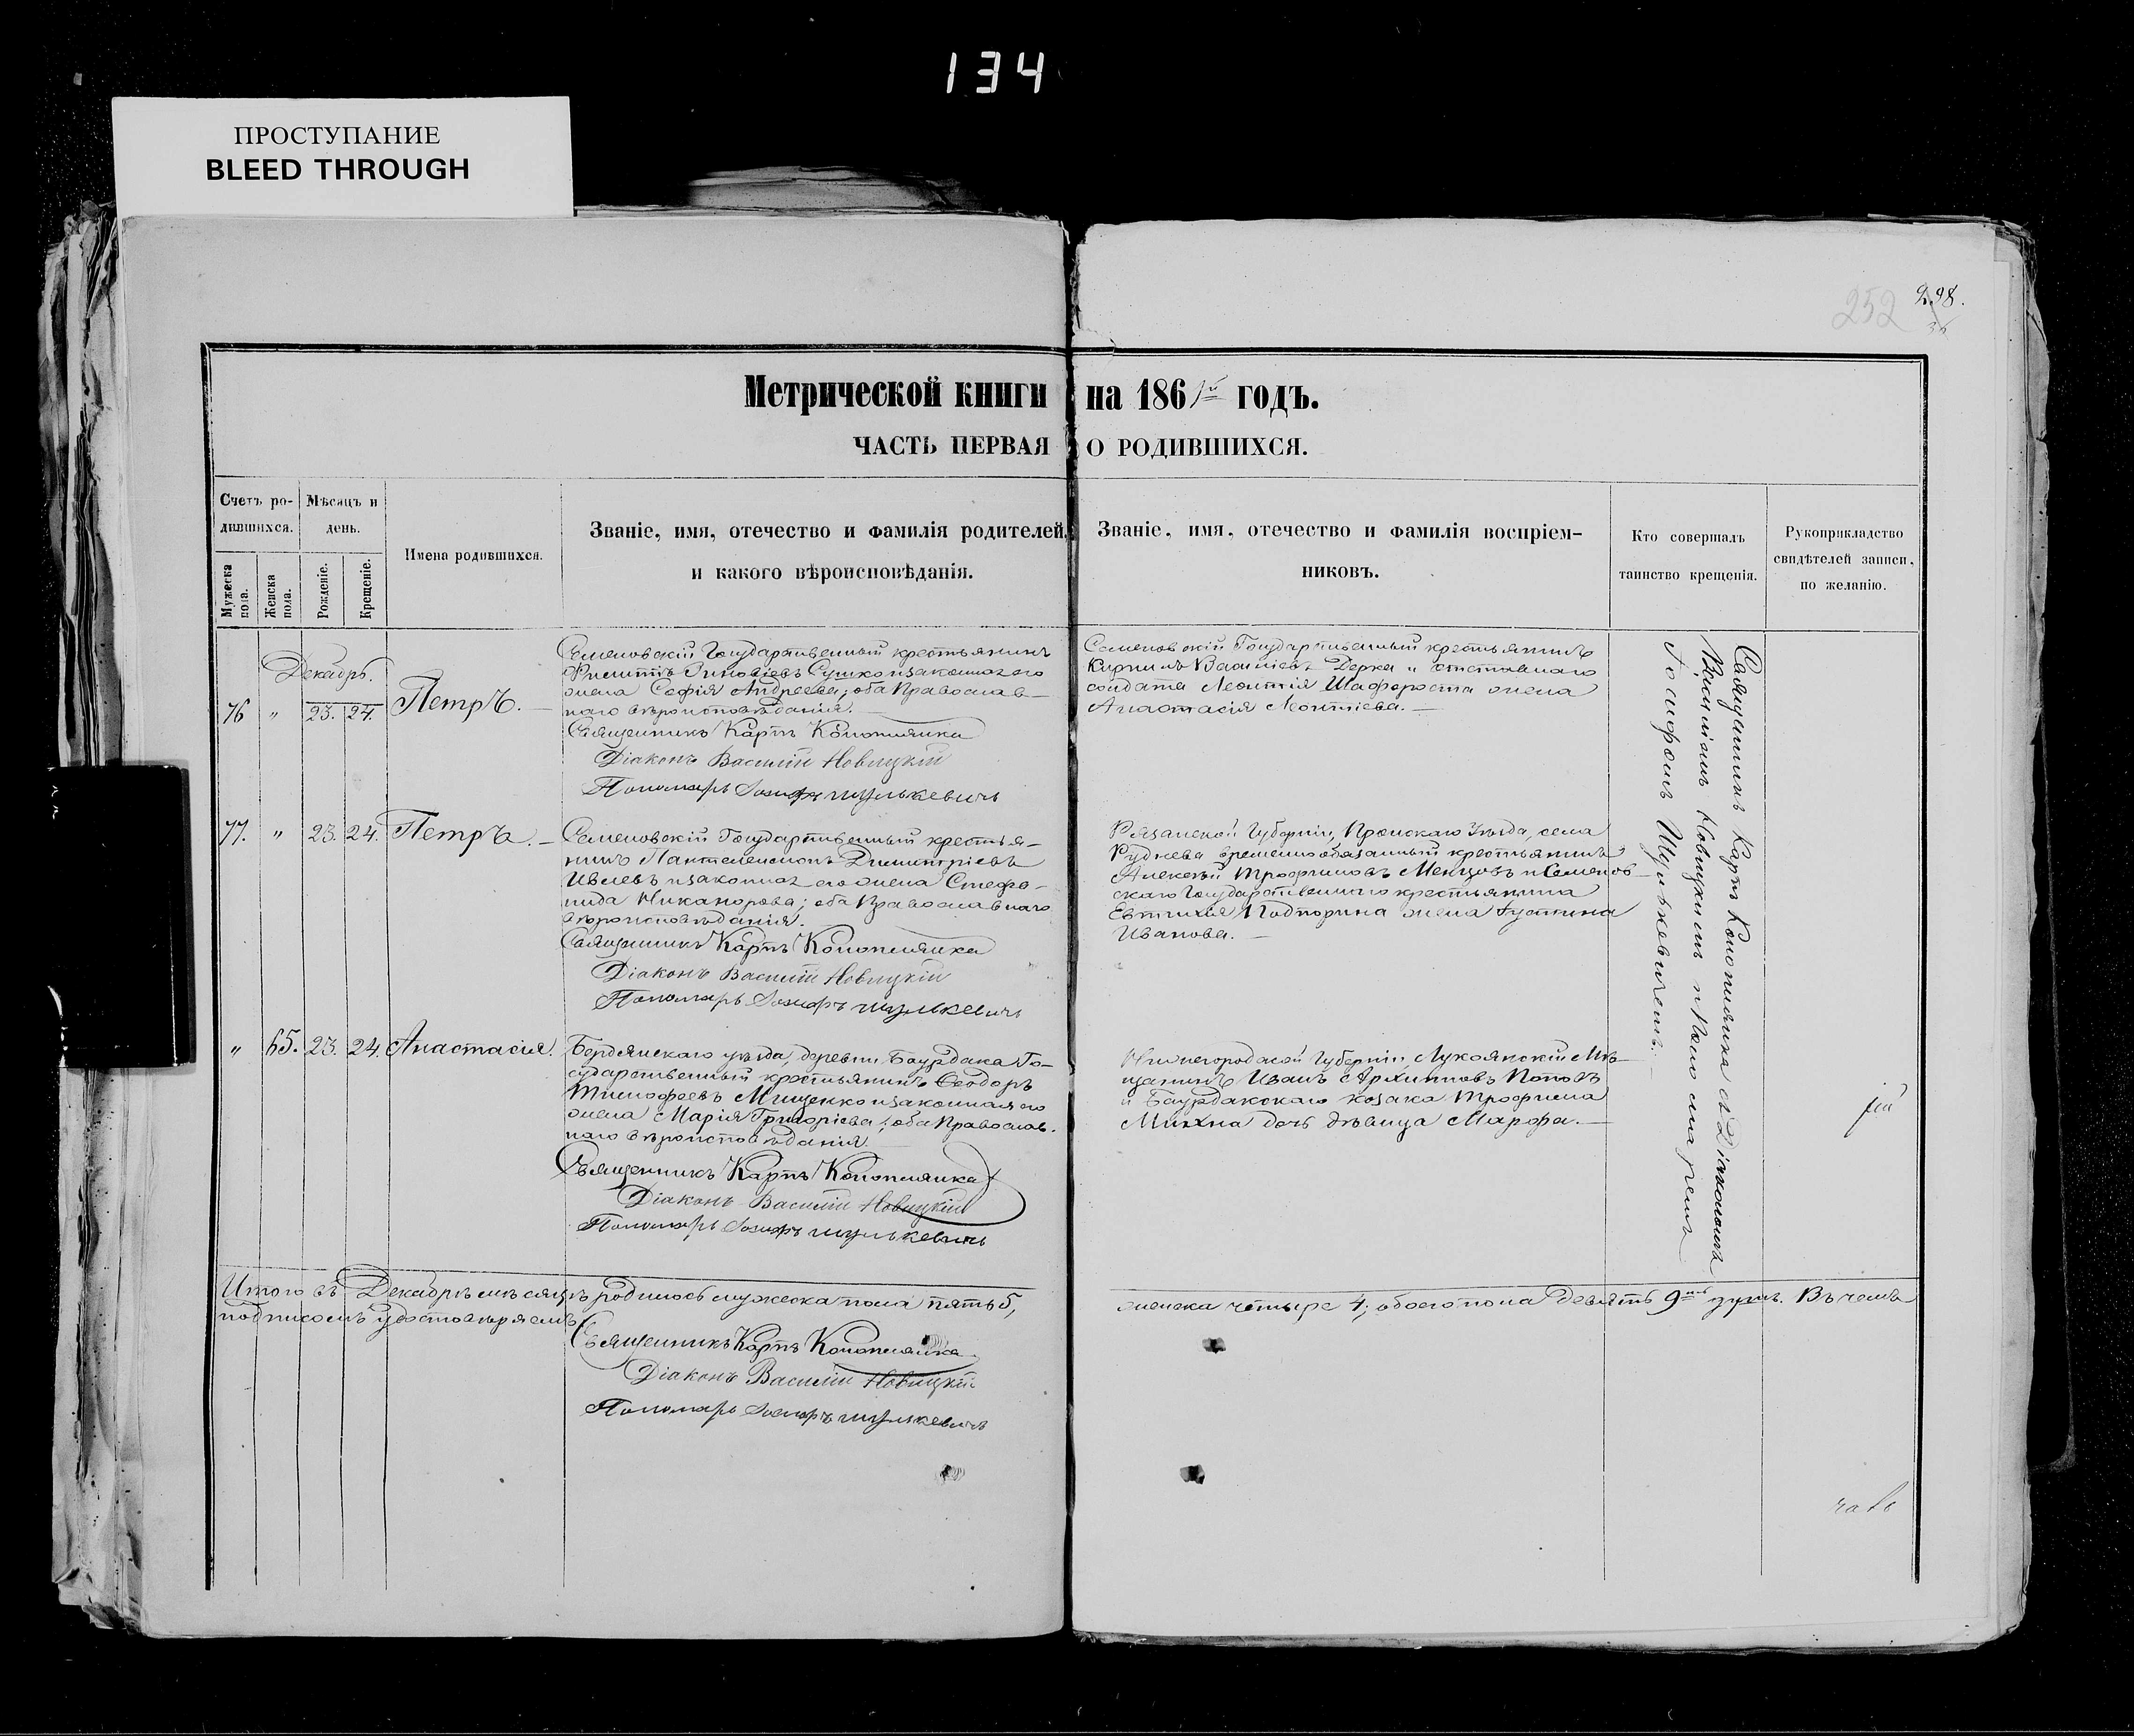 134
ПРОСТУПАНИЕ
BLEED THROUGH
252
298.
Метрической книги на 1861й годъ.
ЧАСТЬ ПЕРВАЯ О РОДИВШИХСЯ.
Счетъ родившихся.
Мужеска пола.
Женска пола.
Мѣсяцъ и день.
Рожденіе.
Крещеніе.
Имена родившихся.
Званіе, имя, отечество и фамилія родителей,
и какого вѣроисповѣданія.
Званіе, имя, отечество и фамилія воспріем-
никовъ.
Кто совершалъ
таинство крещенія.
Рукоприкладство
свидѣтелей записи,
по желанію.
Декабрь.
76 " 23. 24. Петръ.
Семеновскій Государственный крестьянинъ
Филиппъ Зиновіевъ Сушко и законная его
жена Софія Андреева; оба Православ-
наго вѣроисповѣданія.
Священникъ Карпъ Коноплянка
Діаконъ Василій Новицкій
Пономарь Іосифъ Шулькевичъ
Семеновскій Государственный крестьянинъ
Кириллъ Василіевъ Дерка и отставнаго
солдата Леонтія Шафороста жена
Анастасія Леонтіева.
77. " 23. 24. Петръ.
Семеновскій Государственный крестья-
нинъ Пантелеимонъ Димитріевъ
Ивлевъ и законная его жена Стефа-
нида Никанорова; оба Православнаго
вѣроисповѣданія.
Священникъ Карпъ Коноплянка
Діаконъ Василій Новицкій
Пономарь Іосифъ Шулькевичъ
Рязанской Губерніи, Пронскаго Уѣзда, села
Руднева временнообязанный крестьянинъ
Алексѣй Трофимовъ и Семенов-
скаго Государственнаго крестьянина
Евтихія Подпорина жена Іустина
Иванова.
" 65. 23. 24. Анастасія.
Бердянскаго уѣзда, деревни Баурдака Го-
сударственный крестьянинъ Ѳеодоръ
Тимофеевъ Мищенко и законная его
жена Марія Григоріева; оба Православ-
наго вѣроисповѣданія.
Священникъ Карпъ Коноплянка
Діаконъ Василій Новицкій
Пономарь Іосифъ Шулькевичъ
Нижегородской Губерніи, Лукоянскій Мѣ-
щанинъ Иванъ Архиповъ Поповъ
и Баурдакскаго козака Трофима
Михна дочь дѣвица Марфа.
Священникъ Карпъ Коноплянка съ Діакономъ
Василіемъ Новицкимъ и Пономаремъ
Іосифомъ Шулькевичемъ.
Итого въ Декабрѣ мѣсяцѣ родилось мужеска пола пять 5, женска четыре 4; обоего пола девять 9ть душъ. Въ чемъ
подписомъ удостовѣряемъ:
Священникъ Карпъ Коноплянка
Діаконъ Василій Новицкій
Пономарь Іосифъ Шулькевичъ